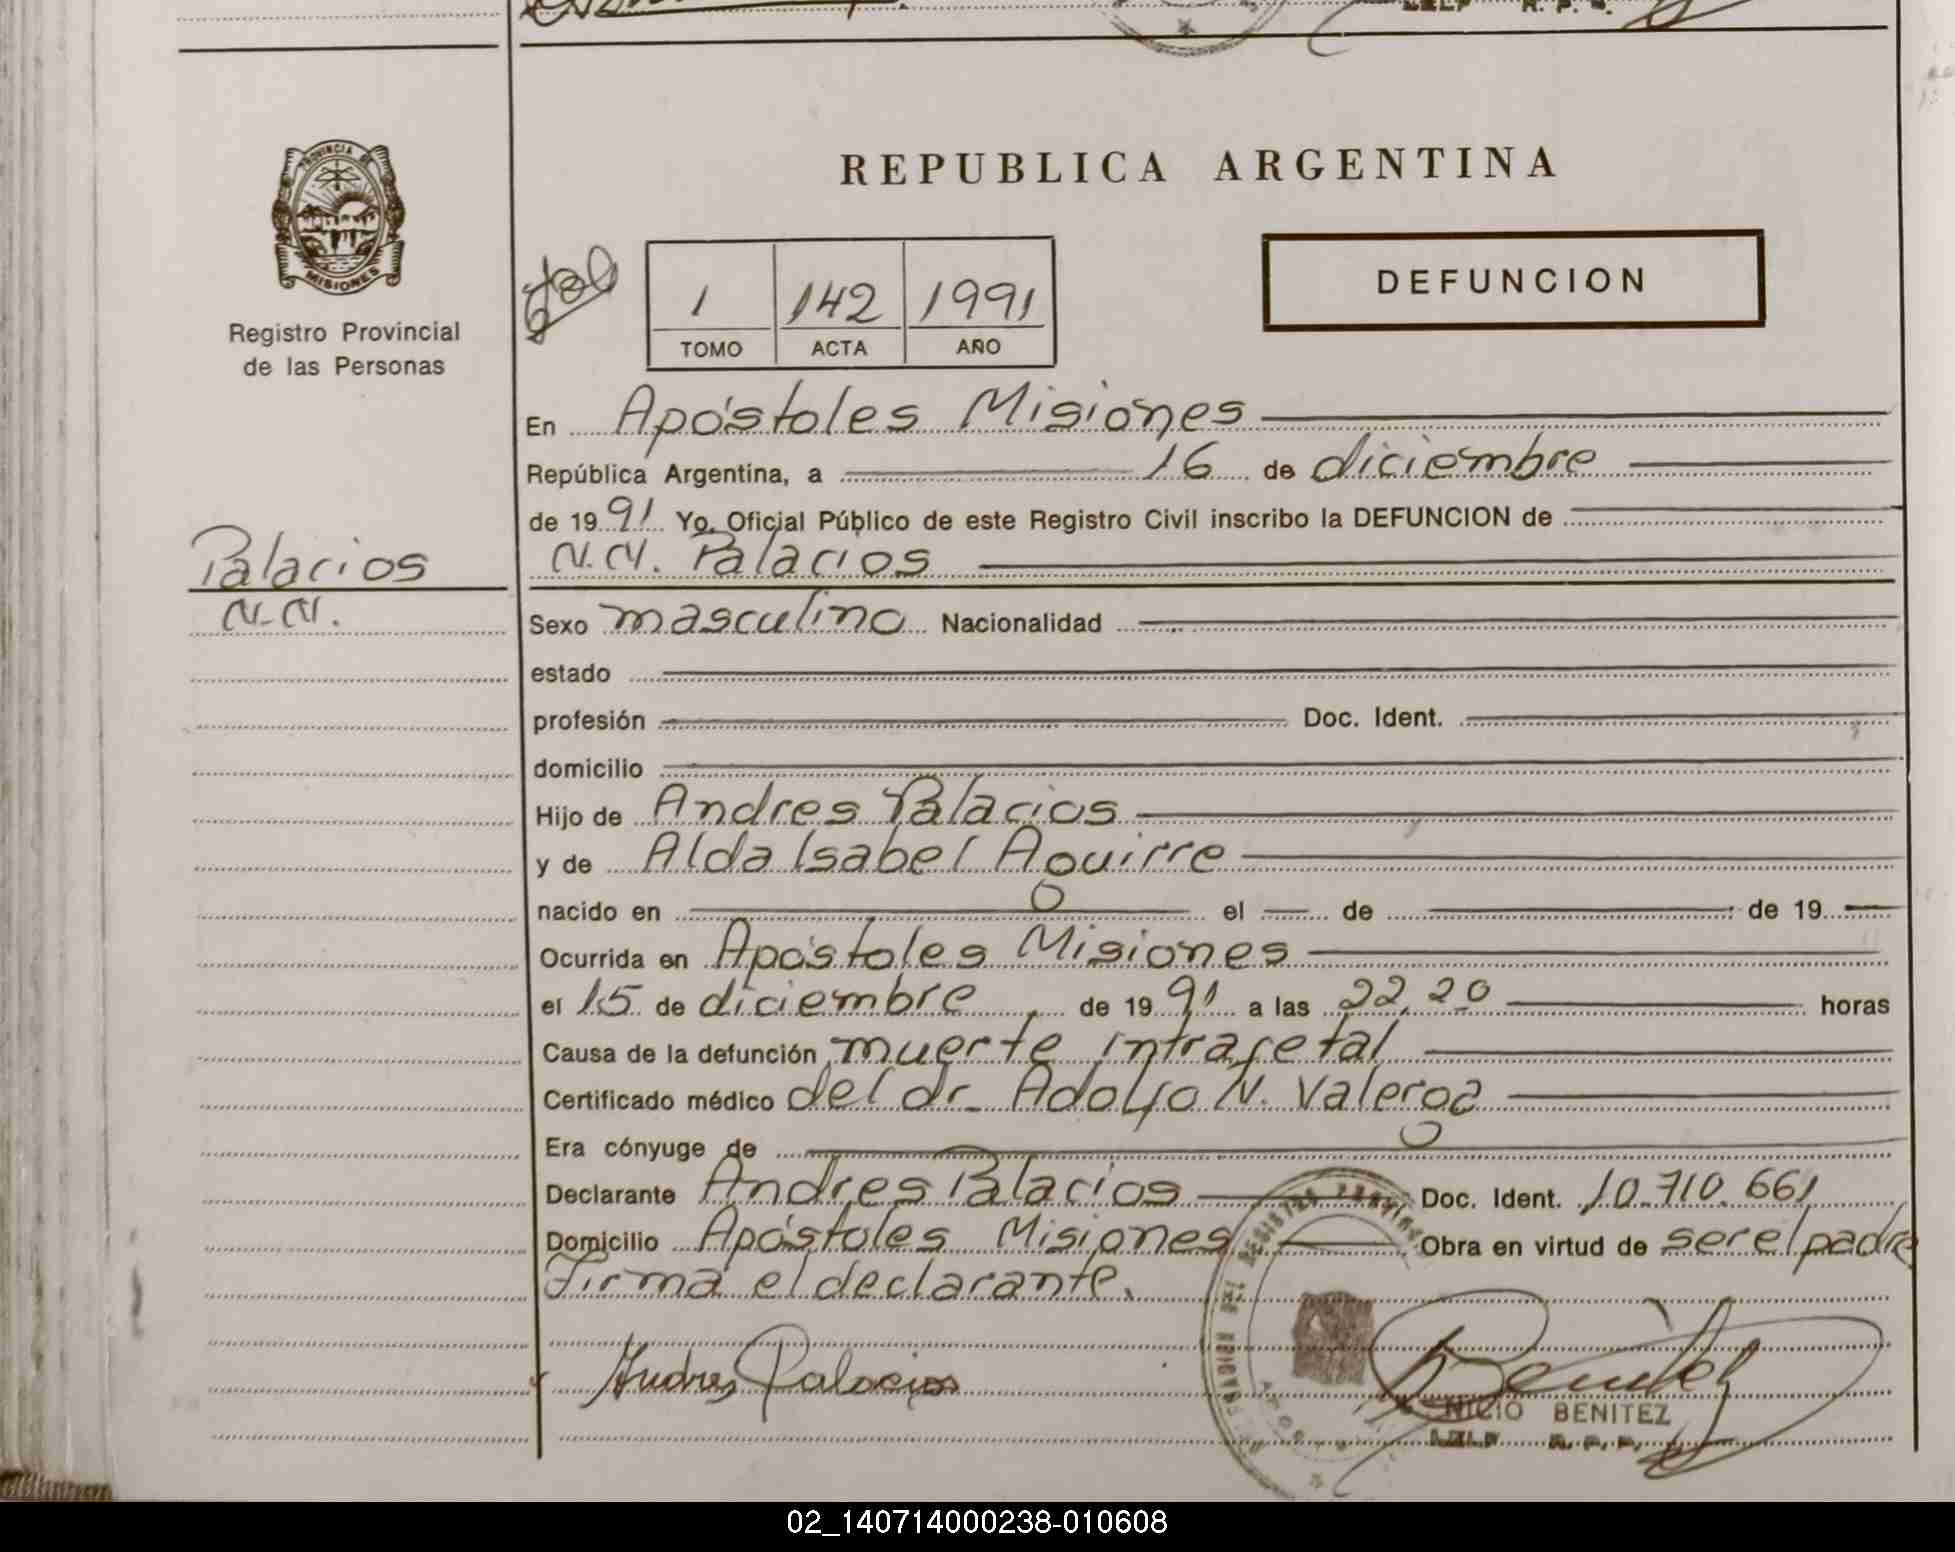 PROVINCIA DE
MISIONES
Registro Provincial
de las Personas
REPUBLICA ARGENTINA
1 142 1991
TOMO ACTA AÑO
DEFUNCION
En Apóstoles Misiones
República Argentina, a 16 de diciembre
de 1991 Yo, Oficial Público de este Registro Civil inscribo la DEFUNCION de
Palacios
N.N.
N.N. Palacios
Sexo masculino Nacionalidad
estado
profesión Doc. Ident.
domicilio
Hijo de Andres Palacios
y de Alda Isabel Aguirre
nacido en el de de 19
Ocurrida en Apóstoles Misiones
el 15 de diciembre de 1991 a las 22,20 horas
Causa de la defunción muerte intrafetal
Certificado médico del dr. Adolfo N. Valerga
Era cónyuge de
Declarante Andres Palacios Doc. Ident. 10.710.661
Domicilio Apóstoles Misiones Obra en virtud de ser el padre
Firma el declarante.
Andres Palacios
NICIO BENITEZ
R. P. P.
02_140714000238-010608